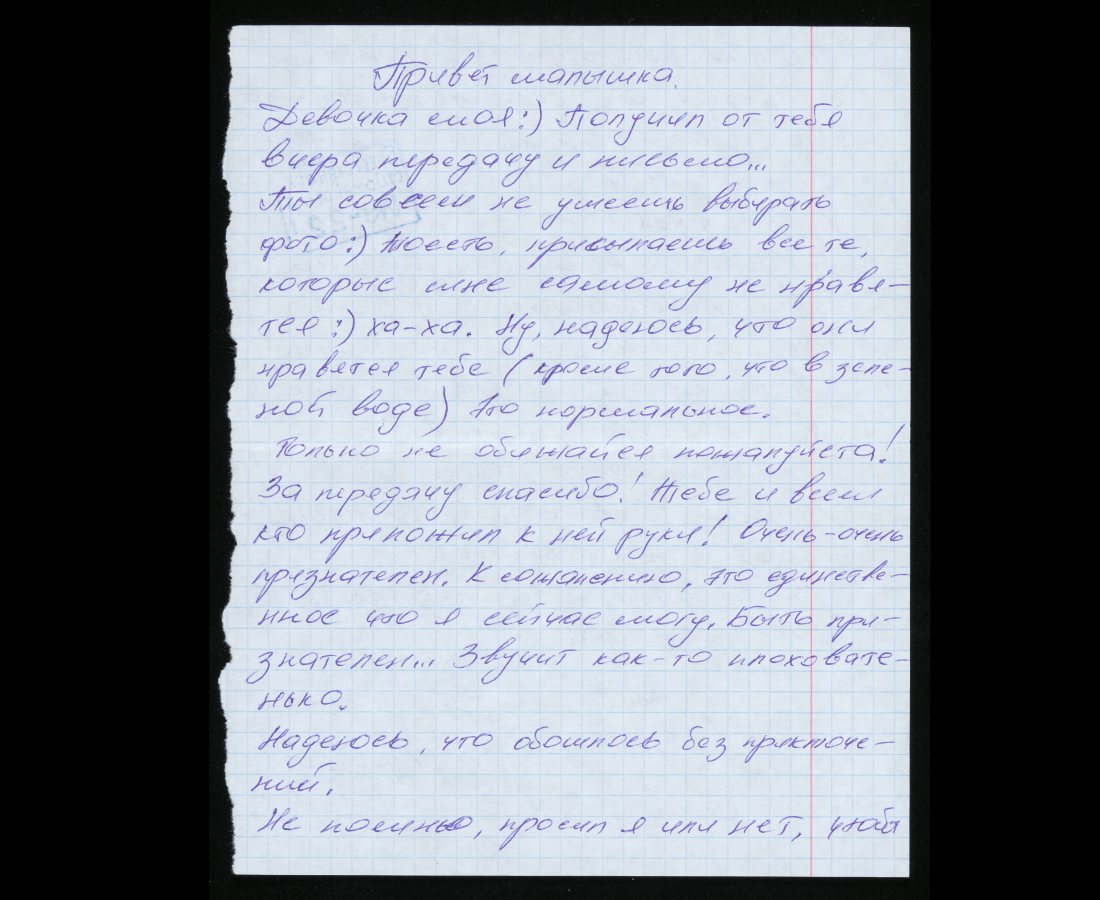 Привет малышка.
Девочка моя:) Получил от тебя
вчера передачу и письмо...
Ты совсем не умеешь выбирать
фото:) Тоесть, присылаешь все те,
которые мне самому не нравя-
тся:) ха-ха. Ну, надеюсь, что они
нравятся тебе (кроме того, что в зеле-
ной воде) Это нормальное.
Только не обижайся пожалуйста!
За передачу спасибо! Тебе и всем
кто приложил к ней руки! Очень-очень
признателен. К сожалению, это единстве-
нное что я сейчас могу. Быть при-
знателен... Звучит как-то плоховате-
нько.
Надеюсь, что обошлось без приключе-
ний.
Не помню, просил я или нет, чтобы